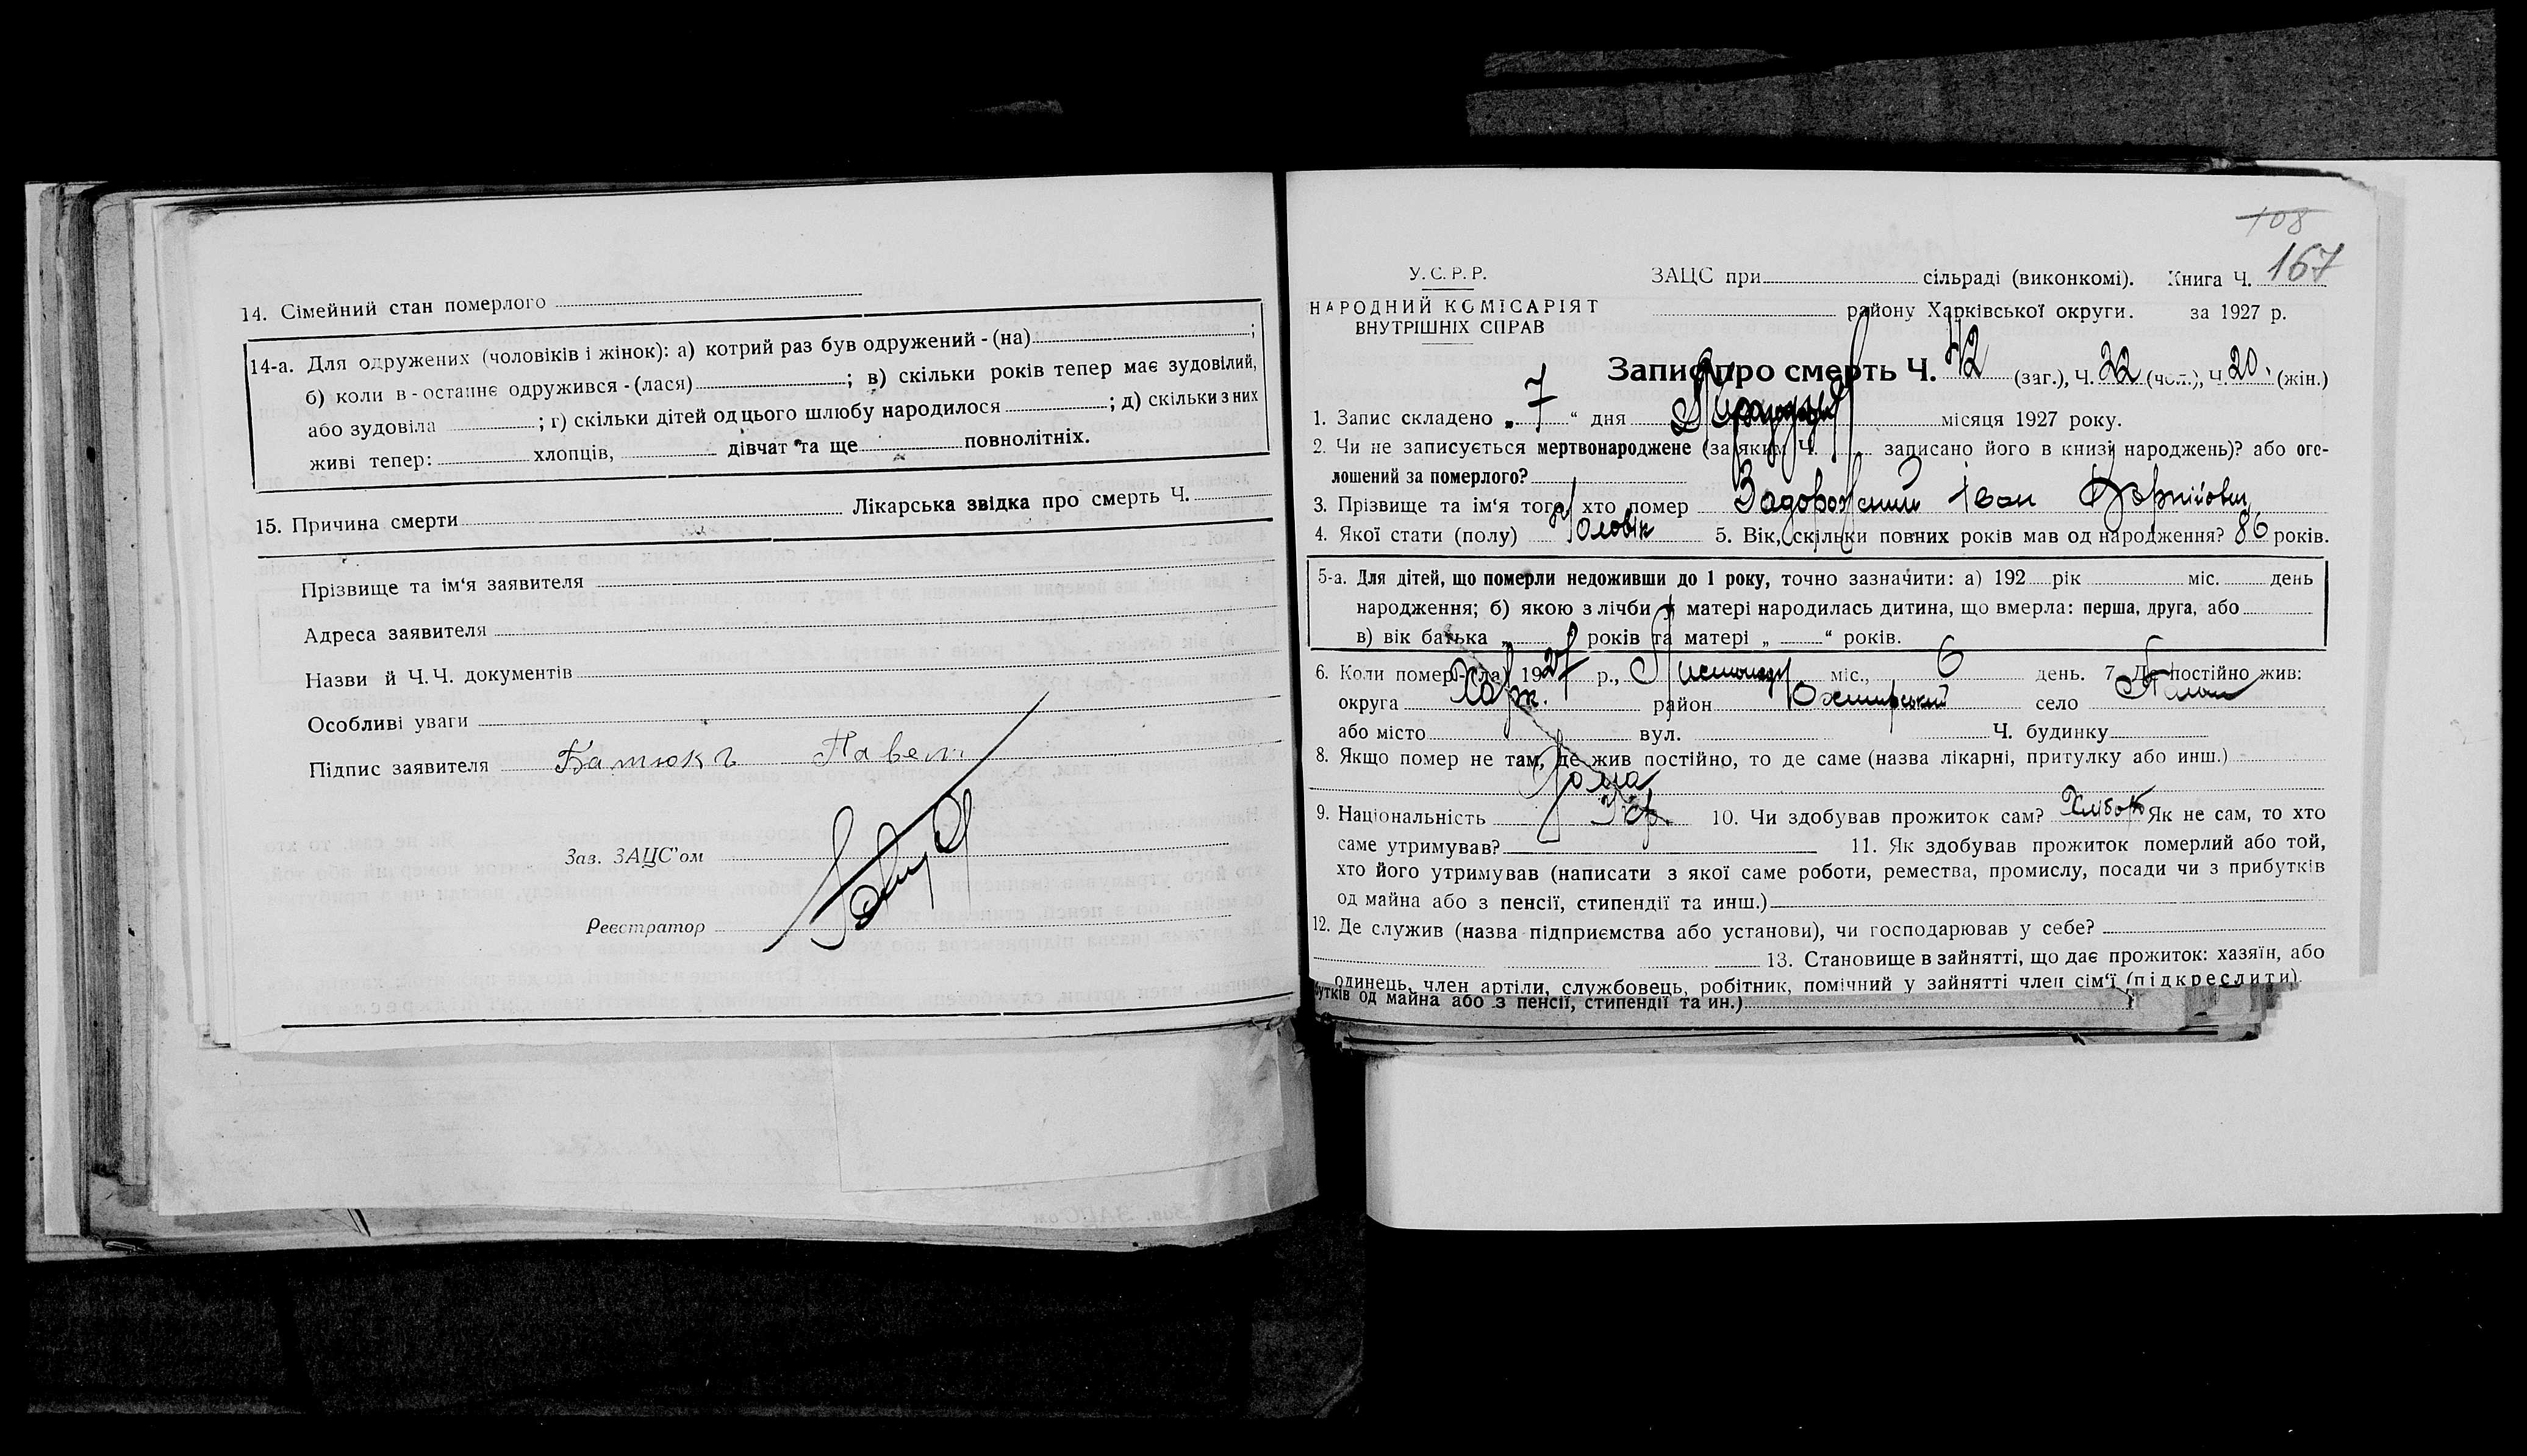 14. Сімейний стан померлого
14-а. Для одружених (чоловіків і жінок): а) котрий раз був одружений - (на) ;
б) коли в - останнє одружився - (лася) ; в) скільки років тепер має зудовілий,
або зудовіла ; г) скільки дітей од цього шлюбу народилося ; д) скільки з них
живі тепер: хлопців, дівчат та ще повнолітніх.
15. Причина смерти Лікарська звідка про смерть Ч.
Прізвище та ім'я заявителя
Адреса заявителя
Назви й Ч.Ч. документів
Особливі уваги
Підпис заявителя Батюкъ Павел
Зав. ЗАЦС'ом
Реєстратор
108
У.С.Р.Р. ЗАЦС при сільраді (виконкомі). Книга Ч. 167
НАРОДНИЙ КОМІСАРІЯТ
ВНУТРІШНІХ СПРАВ
району Харківської округи. за 1927 р.
Запис про смерть Ч. 42 (заг.), Ч. 22 (чол.), Ч. 20. (жін.)
1. Запис складено „ 7 “ дня місяця 1927 року.
2. Чи не записується мертвонароджене (за яким Ч. записано його в книзі народжень)? або ого-
лошений за померлого?
3. Прізвище та ім'я того, хто помер Задорожний Іван
4. Якої стати (полу) Чоловік 5. Вік, скільки повних років мав од народження? 86 років.
5-а. Для дітей, що померли недоживши до 1 року, точно зазначити: а) 192 рік міс. день
народження; б) якою з лічби у матері народилась дитина, що вмерла: перша, друга, або
в) вік батька „ “ років та матері „ “ років.
6. Коли помер-(ла) 1927 р., Листопаду міс., 6 день. 7. Де постійно жив:
округа Харк. район село
або місто вул. Ч. будинку
8. Якщо помер не там, де жив постійно, то де саме (назва лікарні, притулку або инш.)
Дома
9. Національність Укр. 10. Чи здобував прожиток сам? Хлібор Як не сам, то хто
саме утримував? 11. Як здобував прожиток померлий або той,
хто його утримував (написати з якої саме роботи, ремества, промислу, посади чи з прибутків
од майна або з пенсії, стипендії та инш.)
12. Де служив (назва підприємства або установи), чи господарював у себе?
13. Становище в зайнятті, що дає прожиток: хазяїн, або
одинець, член артіли, службовець, робітник, помічний у зайнятті член сім'ї (підкреслити).
бутків од майна або з пенсії, стипендії та ин.)